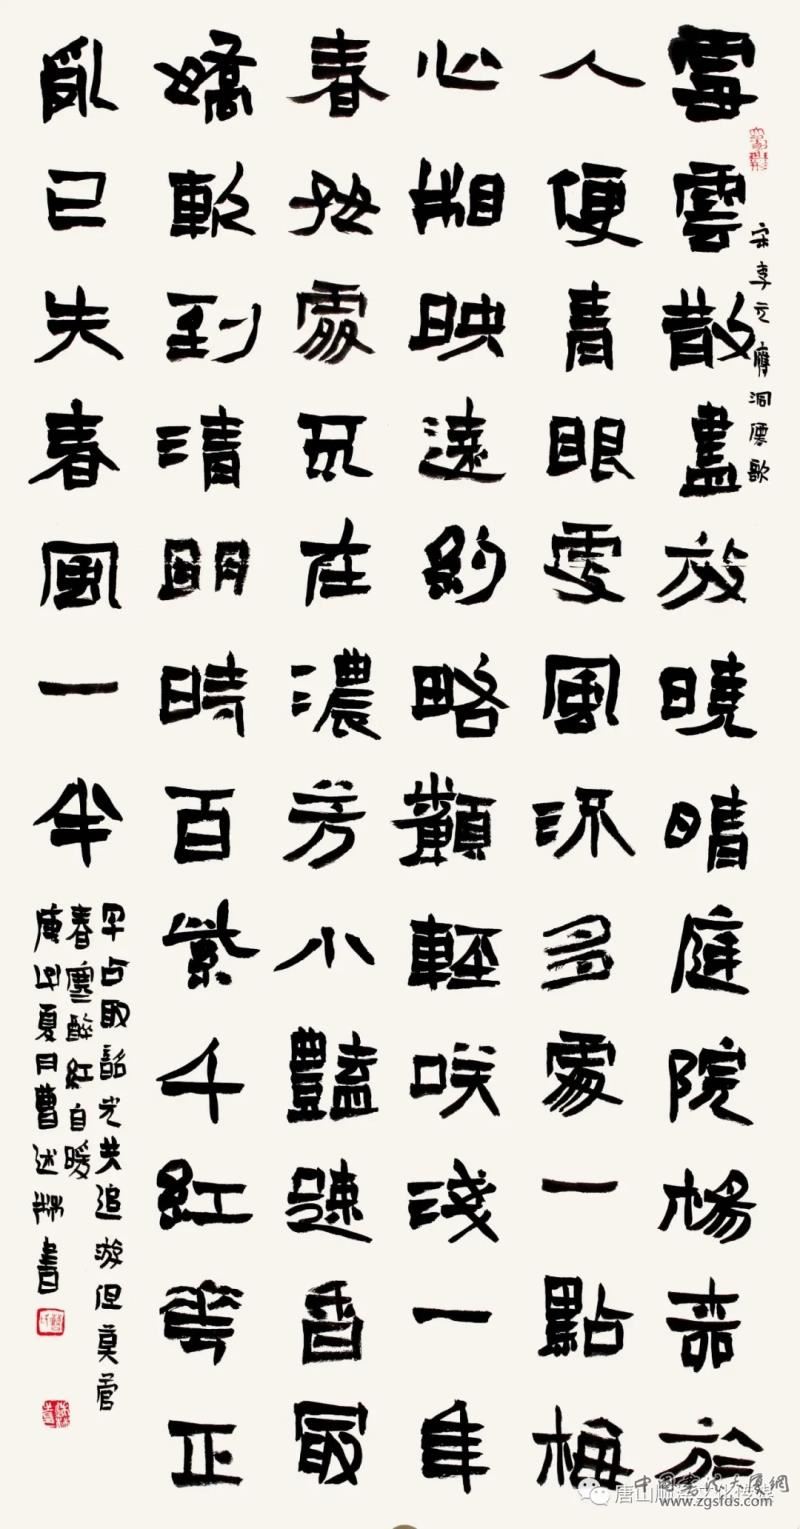 雪雲散盡放曉晴庭院楊柳於
人便青眼更風流多處一點梅
心相映遠約略顰輕咲淺一年
春好處不在濃芳小豔疎香最
嬌軟到清明時百紫千紅花正
亂已失春風一半
宋李元膺洞僊歌
早占取韶光共追游但莫管
春寒醉紅自暖
夏月曹述書
中國書法大廈網
唐山
www.zgsfds.com